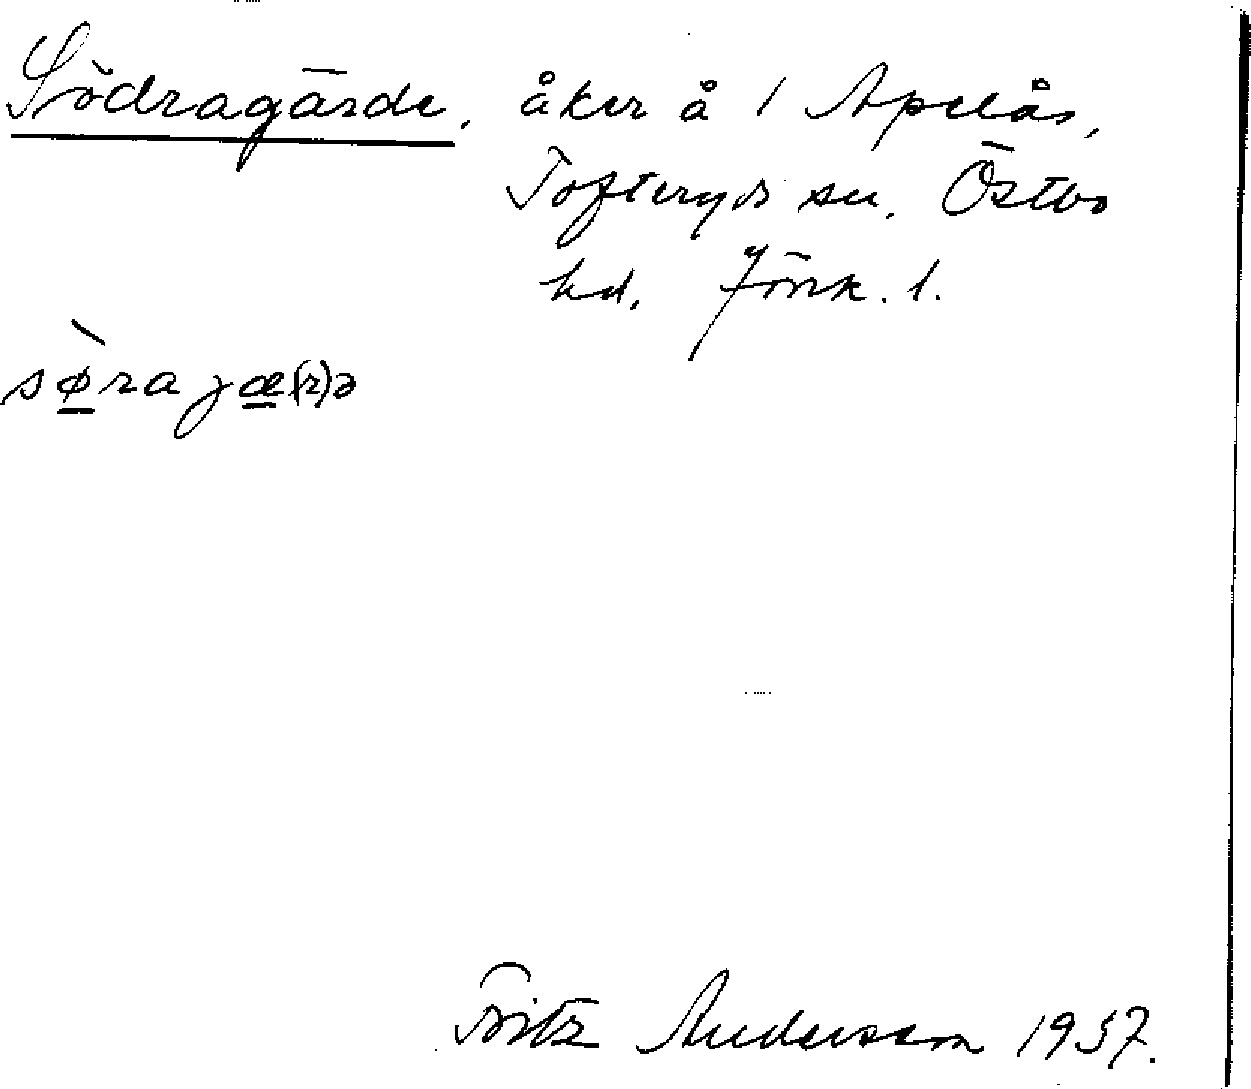 Södragärde, åker å 1 Apelås,
Tofteryds sn. Östbo
hd. Jönk. l.
sø̀rajæ(r)ə
Fritz Andersson 1937.